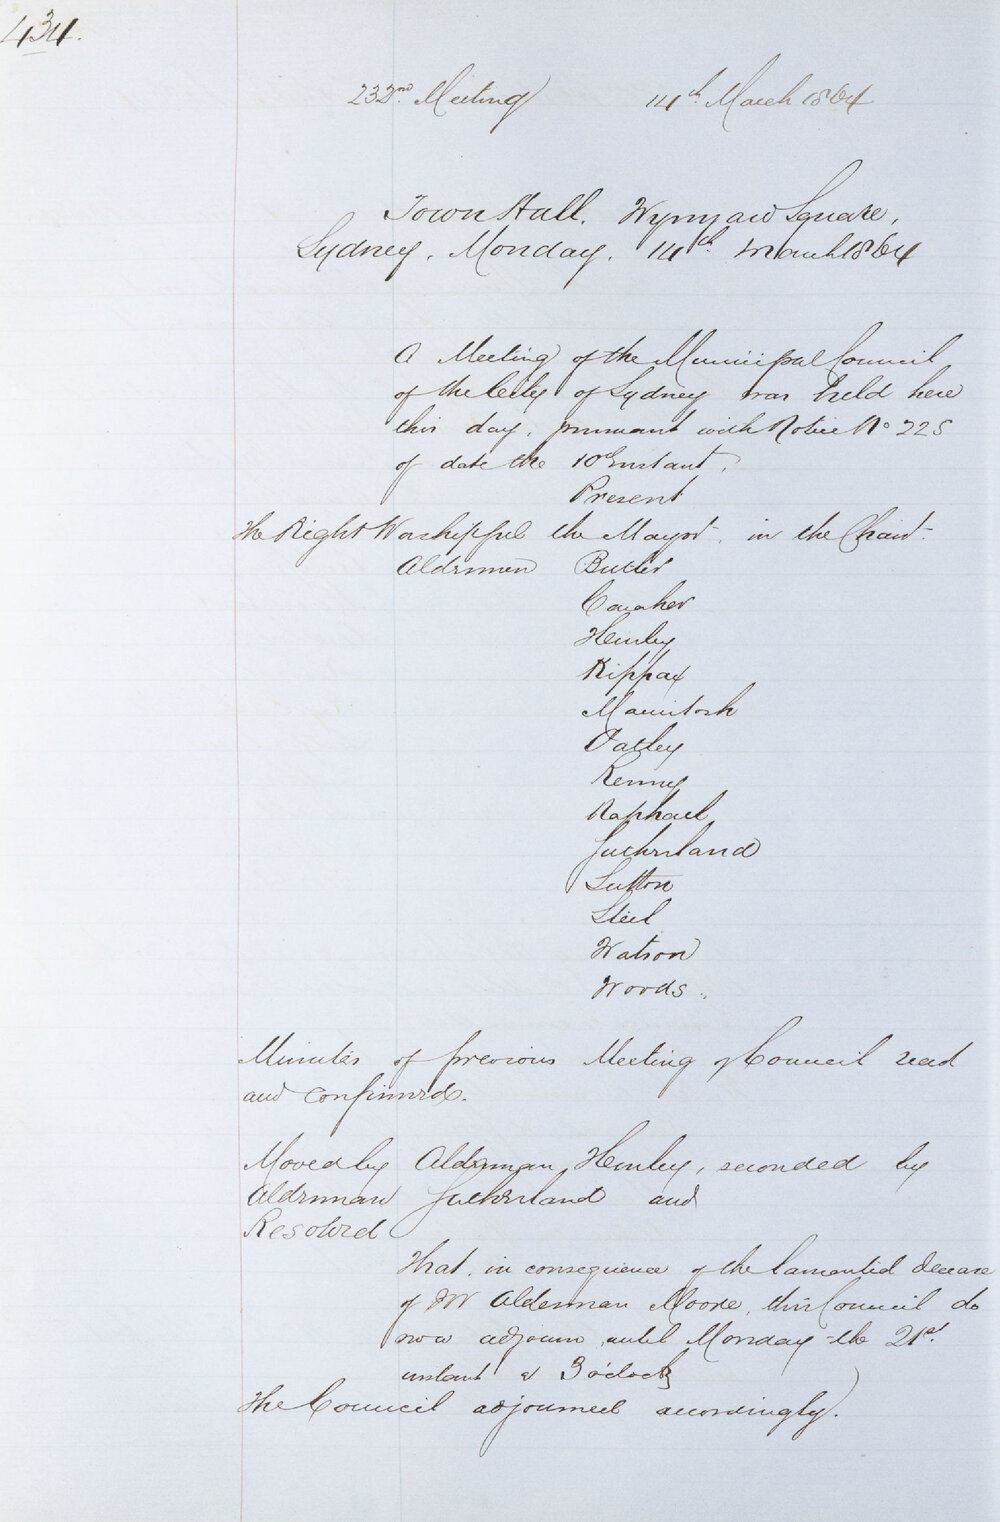 434.
232nd. Meeting 14th March 1864
Town Hall. Wynyard Square,
Sydney. Monday. 14th. March 1864
A Meeting of the Municipal Council
of the City of Sydney was held here
this day, pursuant with Notice No 225
of date the 10th Instant.
Present
The Right Worshipful the Mayor. in the Chair.
Aldermen Butler
Caraher
Henley
Kippax
Macintosh
Oatley
Renny
Raphael
Sutherland
Sutton
Steel
Watson
Woods.
Minutes of previous Meeting of Council read
and Confirmed.
Moved by Alderman Henley, seconded by
Alderman Sutherland and
Resolved
That, in consequence of the lamented decease
of Mr Alderman Moore, this Council do
now adjourn until Monday the 21st.
instant at 3 o'clock
The Council adjourned accordingly.